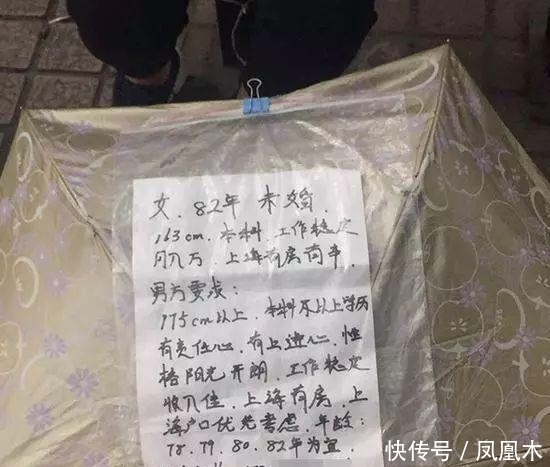 女、82年 未婚.
163cm. 本科. 工作稳定
月入万. 上海有房有车.
男方要求:
175cm以上. 本科及以上学历
有责任心. 有上进心. 性
格阳光开朗. 工作稳定
收入佳. 上海有房. 上
海户口优先考虑. 年龄:
78.79.80.82年为宜.
快传号/凤凰木